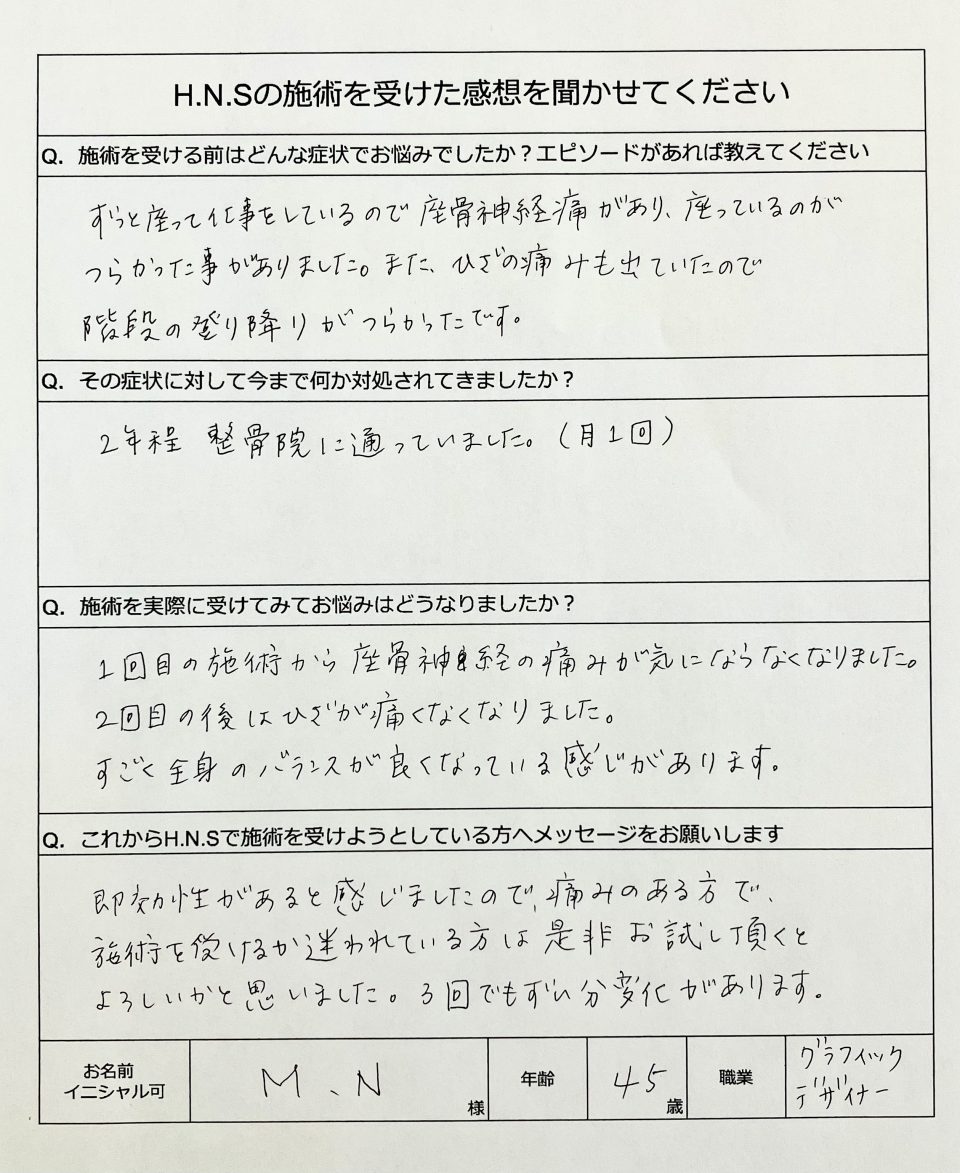 H.N.Sの施術を受けた感想を聞かせてください
Q. 施術を受ける前はどんな症状でお悩みでしたか？エピソードがあれば教えてください
ずっと座って仕事をしているので座骨神経痛があり、座っているのが
つらかった事がありました。また、ひざの痛みも出ていたので
階段の登り降りがつらかったです。
Q. その症状に対して今まで何か対処されてきましたか？
2年程 整骨院に通っていました。(月1回)
Q. 施術を実際に受けてみてお悩みはどうなりましたか？
1回目の施術から座骨神経の痛みが気にならなくなりました。
2回目の後はひざが痛くなくなりました。
すごく全身のバランスが良くなっている感じがあります。
Q. これからH.N.Sで施術を受けようとしている方へメッセージをお願いします
即効性があると感じましたので、痛みのある方で、
施術を受けるか迷われている方は是非お試し頂くと
よろしいかと思いました。3回でもずい分変化があります。
お名前
イニシャル可
M、N 様
年齢
45歳
職業
グラフィック
デザイナー